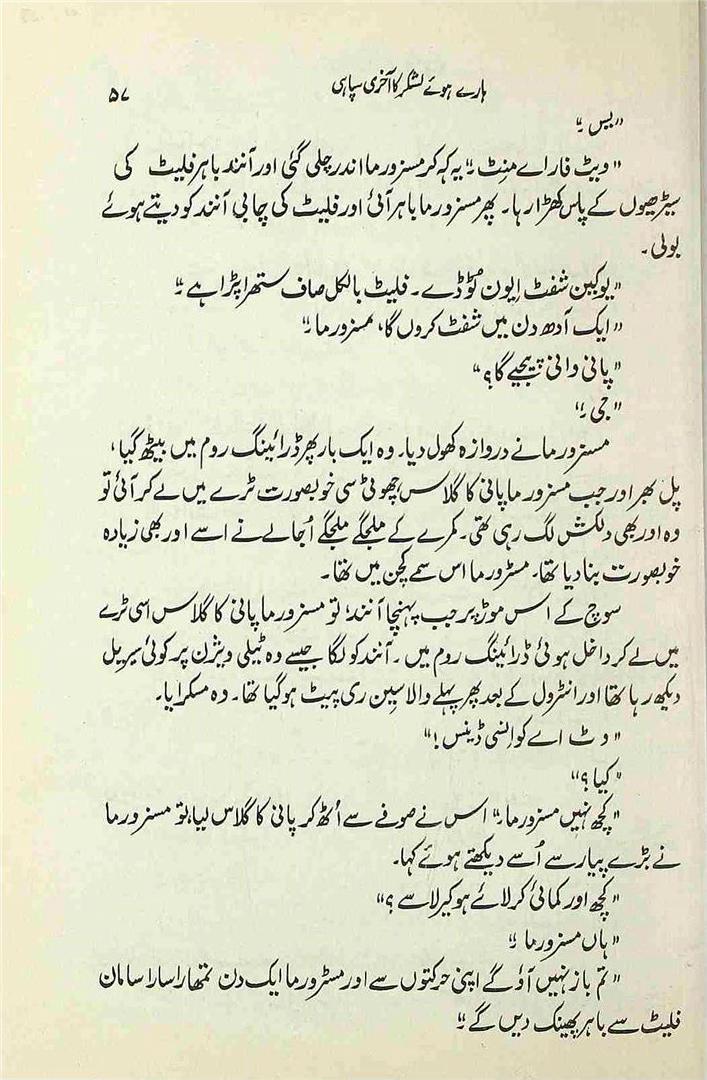 ہارے ہوئے لشکر کا آخری سپاہی
۵۷
"بس۔"
"ویٹ فار اے منٹ۔" یہ کہہ کر مسز ورما اندر چلی گئی اور آنند باہر فلیٹ کی
سیڑھیوں کے پاس کھڑا رہا۔ پھر مسز ورما باہر آئی اور فلیٹ کی چابی آنند کو دیتے ہوئے
بولی۔
"یو کین شفٹ ایون ٹوڈے۔ فلیٹ بالکل صاف ستھرا پڑا ہے۔"
"ایک آدھ دن میں شفٹ کروں گا، مسز ورما۔"
"پانی وانی پیجیے گا؟"
"جی۔"
مسز ورما نے دروازہ کھول دیا۔ وہ ایک بار پھر ڈرائینگ روم میں بیٹھ گیا،
پل بھر اور جب مسز ورما پانی کا گلاس چھوٹی سی خوبصورت ٹرے میں لے کر آئی تو
وہ اور بھی دلکش لگ رہی تھی۔ کمرے کے ملجگے ملجگے اُجالے نے اسے اور بھی زیادہ
خوبصورت بنا دیا تھا۔ مسٹر ورما اس سمے کچن میں تھا۔
سوچ کے اس موڑ پر جب پہنچا آنند، تو مسز ورما پانی کا گلاس اسی ٹرے
میں لے کر داخل ہوئی ڈرائینگ روم میں۔ آنند کو لگا جیسے وہ ٹیلی ویژن پر کوئی سیریل
دیکھ رہا تھا اور انٹرول کے بعد پھر پہلے والا سین ری پیٹ ہو گیا تھا۔ وہ مسکرایا۔
"وٹ اے کو انسی ڈینس!"
"کیا؟"
"کچھ نہیں مسز ورما۔" اس نے صوفے سے اُٹھ کر پانی کا گلاس لیا، تو مسز ورما
نے بڑے پیار سے اُسے دیکھتے ہوئے کہا۔
"کچھ اور کمائی کر لائے ہو کیرلا سے؟"
"ہاں مسز ورما۔"
"تم باز نہیں آؤ گے اپنی حرکتوں سے اور مسٹر ورما ایک دن تمھارا سارا سامان
فلیٹ سے باہر پھینک دیں گے۔"